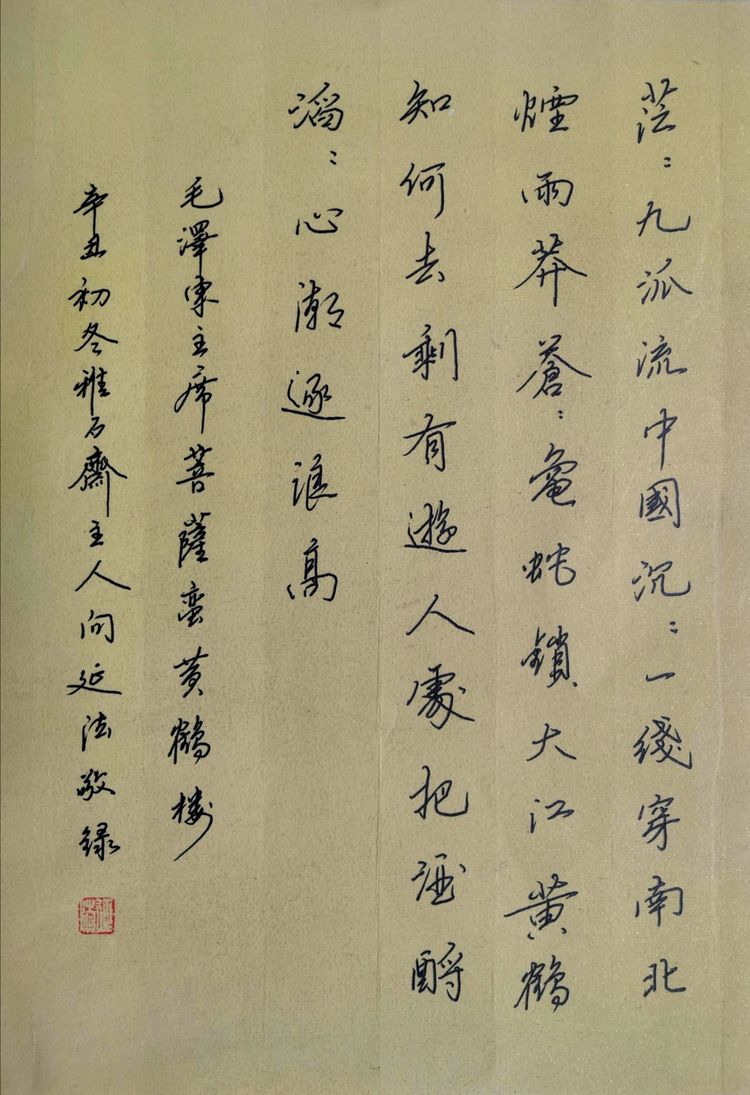 茫：九派流中國沉：一綫穿南北
煙雨莽蒼：龜蛇鎖大江黄鶴
知何去剩有遊人處把酒酹
滔：心潮逐浪高
毛澤東主席菩薩蛮黄鶴楼
辛丑初冬雅石齋主人向延法敬録